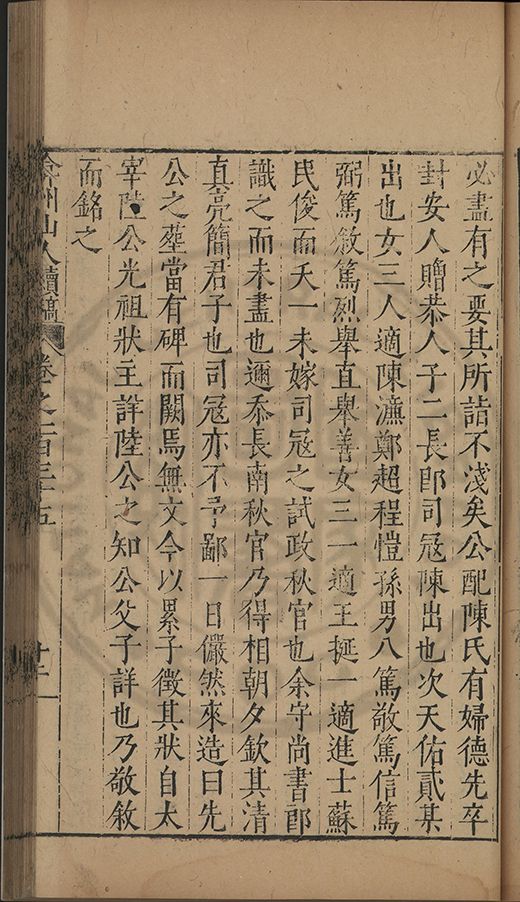 必盡有之要其所詣不淺矣公配陳氏有婦德先卒
封安人贈恭人子二長郎司寇陳出也次天佑貳某
出也女三人適陳濂鄭超程愷孫男八篤敬篤信篤
弼篤敘篤烈舉直舉善女三一適王挻一適進士蘇
民俊而夭一未嫁司寇之試政秋官也余守尚書郎
識之而未盡也邇忝長南秋官乃得相朝夕欽其清
真亮簡君子也司寇亦不予鄙一日儼然來造曰先
公之塟當有碑而闕焉無文今以累子徵其狀自太
宰陸公光祖狀主詳陸公之知公父子詳也乃敬敘
而銘之
弇州山人續稿 卷之一百三十五 廿二